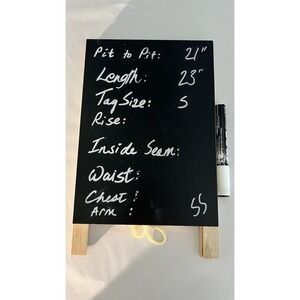 Pit to Pit: 21"
Length: 23"
Tag Size: S
Rise:
Inside Seam:
Waist:
Chest:
Arm: